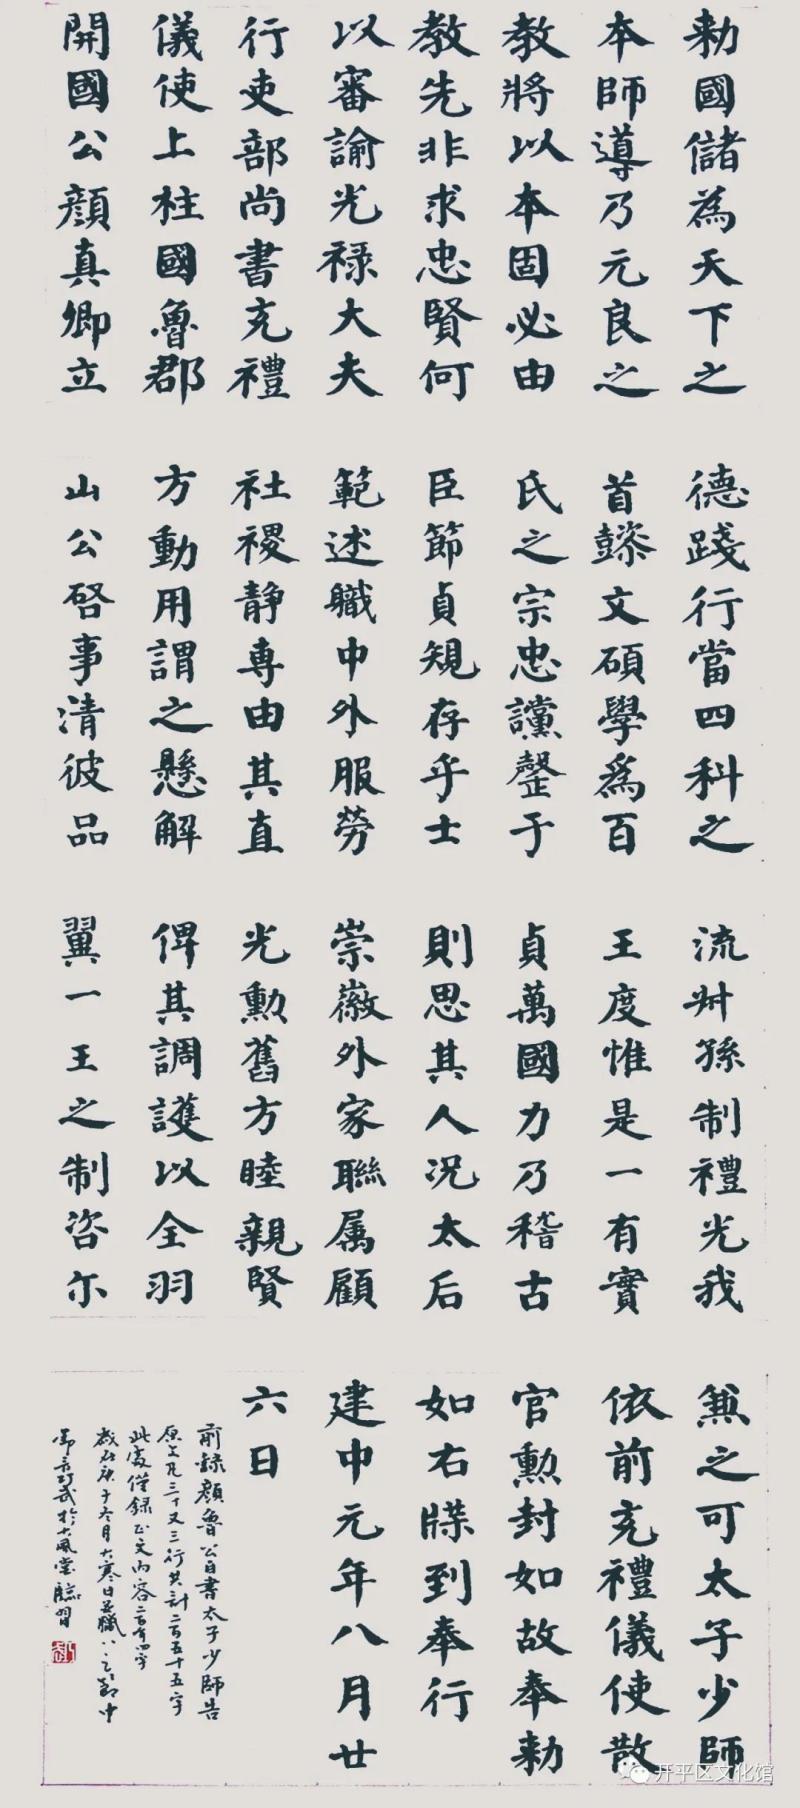 勅國儲為天下之
本師導乃元良之
教將以本固必由
教先非求忠賢何
以審諭光禄大夫
行吏部尚書充禮
儀使上柱國魯郡
開國公顏真卿立
德踐行當四科之
首懿文碩學為百
氏之宗忠讜罄于
臣節貞規存乎士
範述職中外服勞
社稷静專由其直
方動用謂之懸解
山公啓事清彼品
流叔孫制禮光我
王度惟是一有實
貞萬國力乃稽古
則思其人况太后
崇徽外家聯属顧
光勳舊方睦親賢
俾其調護以全羽
翼一王之制咨尔
兼之可太子少師
依前充禮儀使散
官勲封如故奉勅
如右牒到奉行
建中元年八月廿
六日
前録顏魯公自書太子少師告
原文凡三十又三行共計二百五十五字
此處僅録正文内容二百字
歲在庚子冬月大寒日並臘八之節中
於大風堂臨習
开平区文化馆